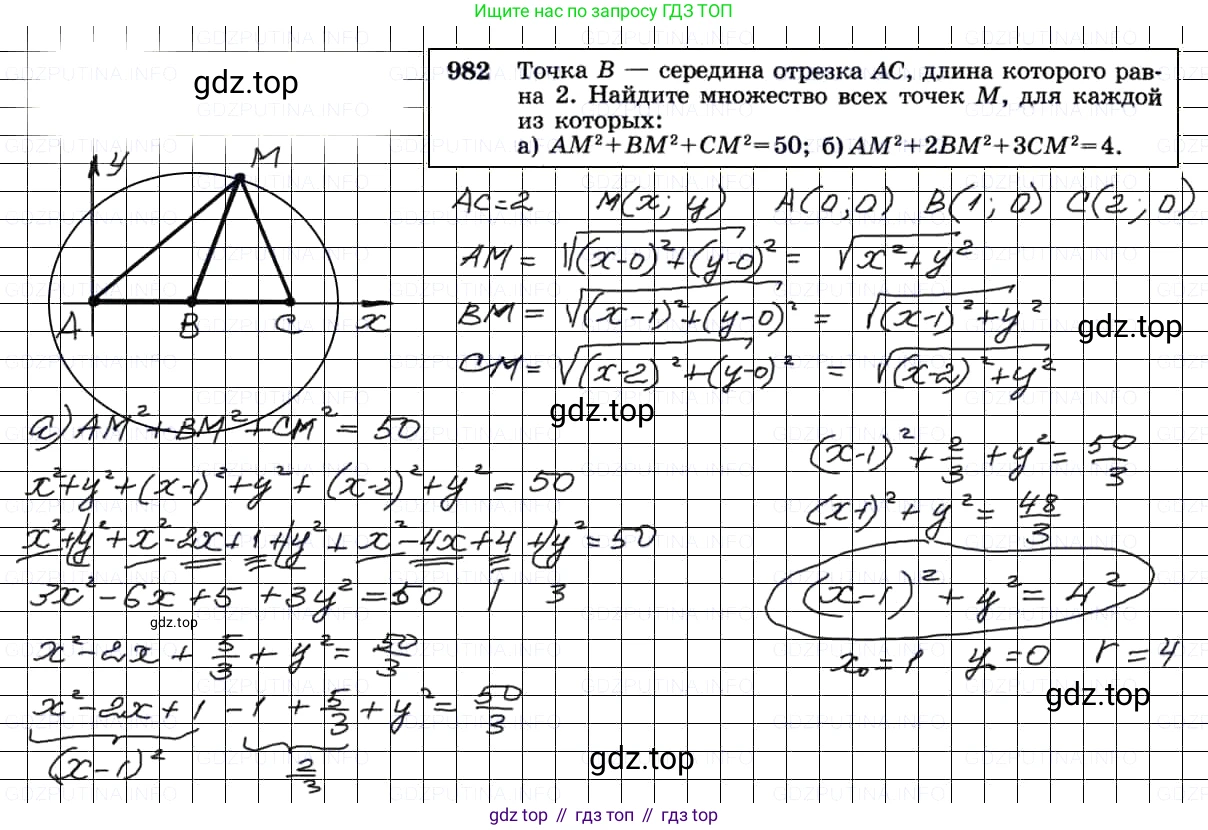 Ищите нас по запросу ГДЗ ТОП
gdz.top
982 Точка B — середина отрезка AC, длина которого рав-
на 2. Найдите множество всех точек M, для каждой
из которых:
а) AM²+BM²+CM²=50; б) AM²+2BM²+3CM²=4.
y
M
A
B
C
x
AC=2 M(x; y) A(0;0) B(1; 0) C(2; 0)
AM = √((x-0)²+(y-0)²) = √(x²+y²)
BM = √((x-1)²+(y-0)²) = √((x-1)²+y²)
gdz.top
CM = √((x-2)²+(y-0)²) = √((x-2)²+y²)
gdz.top
а) AM²+BM²+CM² = 50
x²+y²+(x-1)²+y²+(x-2)²+y² = 50
x²+y²+x²-2x+1+y²+x²-4x+4+y²=50
3x²-6x+5+3y²=50 | 3
gdz.top
x²-2x+5/3+y²=50/3
x²-2x+1-1+5/3+y²=50/3
(x-1)² 2/3
(x-1)²+2/3+y²=50/3
(x-1)²+y²=48/3
(x-1)²+y²=4²
x₀=1 y₀=0 r=4
gdz.top
gdz.top
gdz top // гдз топ // gdz top